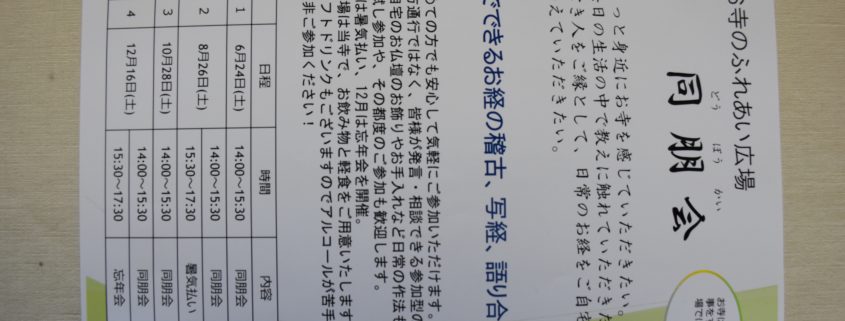 お寺のふれあい広場
どう ぼう かい
同朋会
っと身近にお寺を感じていただきたい。
日の生活の中で教えに触れていただきた
き人をご縁として、日常のお経をご自宅
えていただきたい。
でできるお経の稽古、写経、語り合
めての方でも安心して気軽にご参加いただけます。
方通行ではなく、皆様が発言・相談できる参加型の
自宅のお仏壇のお飾りやお手入れなど日常の作法も
試し参加や、その都度のご参加も歓迎します。
は暑気払い、12月は忘年会を開催。
場は当寺で、お飲み物と軽食をご用意いたします
フトドリンクもございますのでアルコールが苦手
非ご参加ください！
日程 時間 内容
1 6月24日(土) 14:00～15:30 同朋会
2 8月26日(土) 14:00～15:30 同朋会
15:30～17:30 暑気払い
3 10月28日(土) 14:00～15:30 同朋会
4 12月16日(土) 14:00～15:30 同朋会
15:30～17:30 忘年会
お寺に
事を
場で